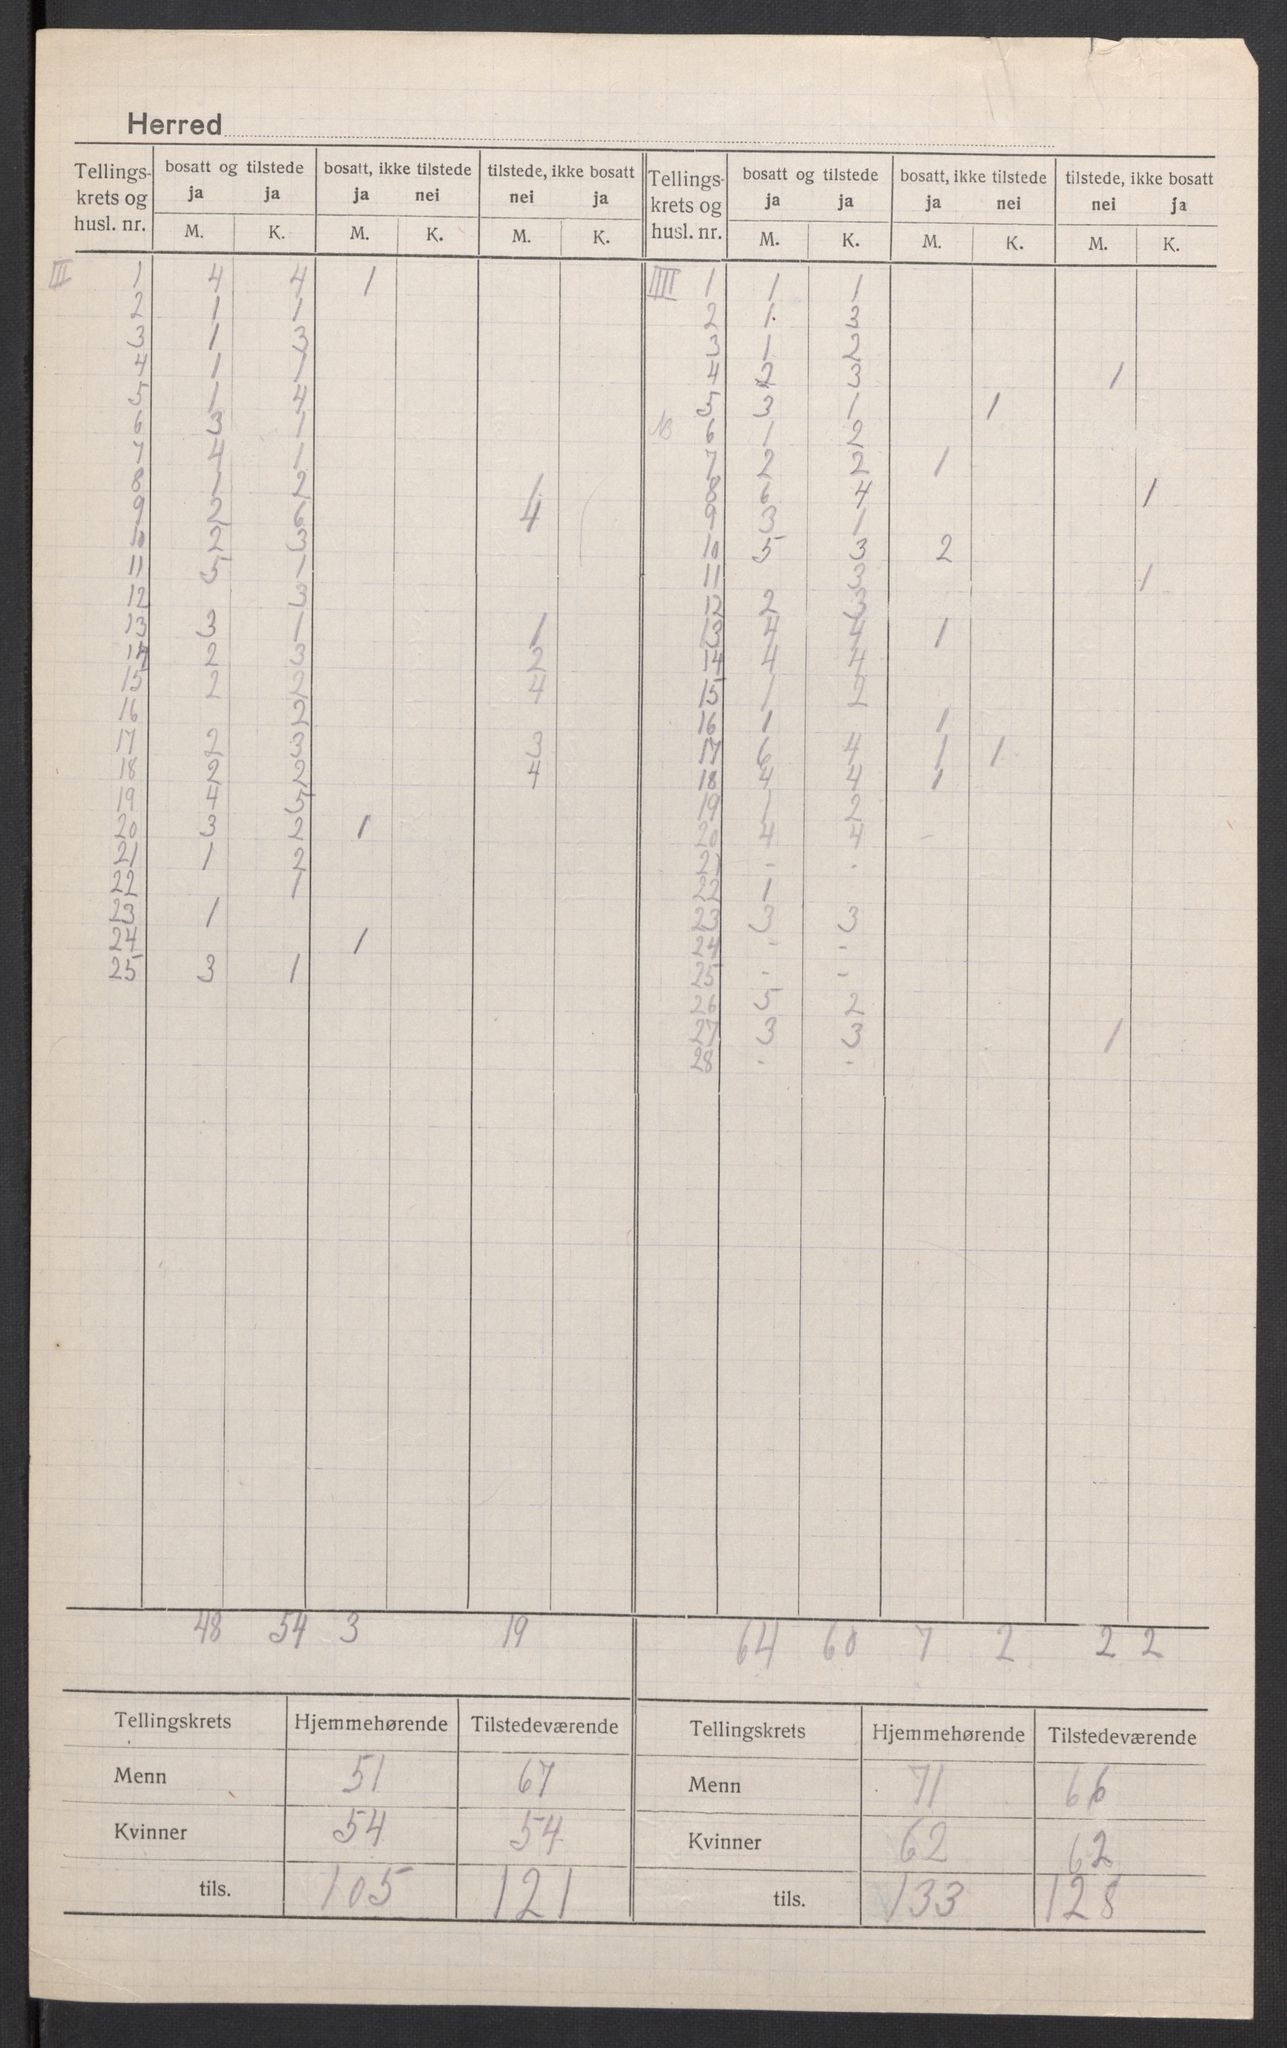 Herred
Tellings- krets og husl. nr. | bosatt og tilstede ja ja | bosatt, ikke tilstede ja nei | tilstede, ikke bosatt nei ja | Tellings- krets og husl. nr. | bosatt og tilstede ja ja | bosatt, ikke tilstede ja nei | tilstede, ikke bosatt nei ja
M. K. M. K. M. K. M. K. M. K. M. K.
III 1 4 4 1 | IIII 1 1 1
2 1 1 | 2 1 3
3 1 3 | 3 1 2
4 1 1 | 4 2 3 1
5 1 4 | 5 3 1 1
6 3 1 | 6 1 2
7 4 1 | 7 2 2 1
8 1 2 1 | 8 6 4 1
9 2 6 4 | 9 3 1
10 2 3 | 10 5 3 2
11 5 1 | 11 3 1
12 3 | 12 2 3
13 3 1 1 | 13 4 4 1
14 2 3 2 | 14 4 4
15 2 2 4 | 15 1 2
16 2 | 16 1 1
17 2 3 3 | 17 6 4 1 1
18 2 2 4 | 18 4 4 1
19 4 5 | 19 1 2
20 3 2 1 | 20 4 4 -
21 1 2 | 21 - -
22 1 | 22 1
23 1 | 23 3 3
24 1 | 24 - -
25 3 1 | 25 - -
26 5 2
27 3 3 1
28 - -
48 54 3 19 | 64 60 7 2 2 2
Tellingskrets Hjemmehørende Tilstedeværende | Tellingskrets Hjemmehørende Tilstedeværende
Menn 51 67 | Menn 71 66
Kvinner 54 54 | Kvinner 62 62
tils. 105 121 | tils. 133 128